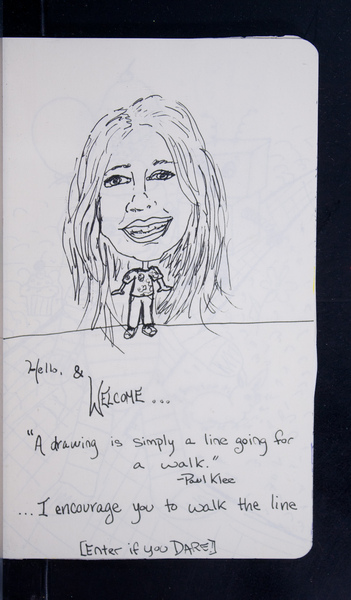 Hello, &
WELCOME...
"A drawing is simply a line going for
a walk."
-Paul Klee
...I encourage you to walk the line
[Enter if you DARE]